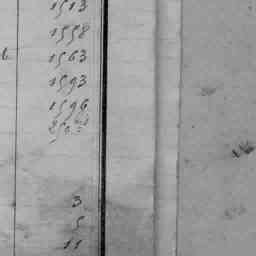 1513
1558
1563
1593
1596
3
5
11